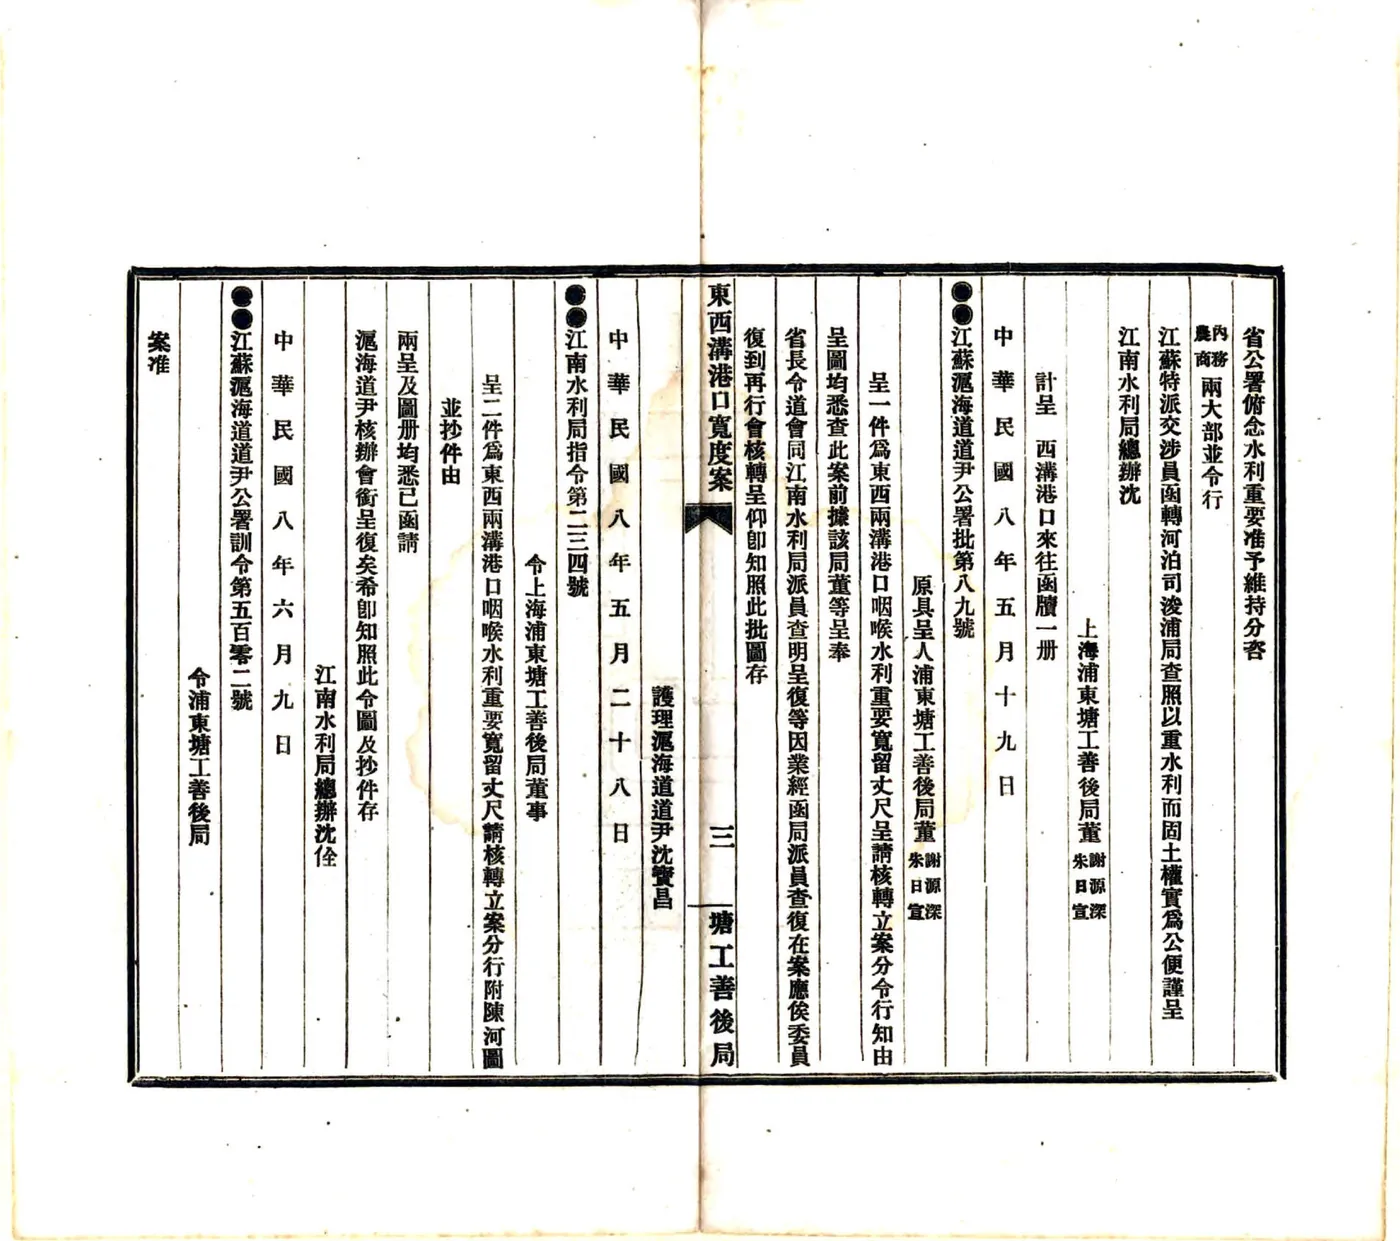 省公署俯念水利重要准予維持分咨
內務農商兩大部並令行
江蘇特派交涉員函轉河泊司浚浦局查照以重水利而固土權實爲公便謹呈
江南水利局總辦沈
上海浦東塘工善後局董謝源深朱日宣
計呈　西溝港口來往函牘一册
中華民國八年五月十九日
●●江蘇滬海道道尹公署批第八九號
原具呈人浦東塘工善後局董謝源深朱日宣
呈一件爲東西兩溝港口咽喉水利重要寬留丈尺呈請核轉立案分令行知由
呈圖均悉查此案前據該局董等呈奉
省長令道會同江南水利局派員查明呈復等因業經函局派員查復在案應俟委員
復到再行會核轉呈仰卽知照此批圖存
東西溝港口寬度案
三
塘工善後局
護理滬海道道尹沈寶昌
中華民國八年五月二十八日
●●江南水利局指令第二三四號
令上海浦東塘工善後局董事
呈二件爲東西兩溝港口咽喉水利重要寬留丈尺請核轉立案分行附陳河圖
並抄件由
兩呈及圖册均悉已函請
滬海道尹核辦會銜呈復矣希卽知照此令圖及抄件存
江南水利局總辦沈佺
中華民國八年六月九日
●●江蘇滬海道道尹公署訓令第五百零二號
令浦東塘工善後局
案准